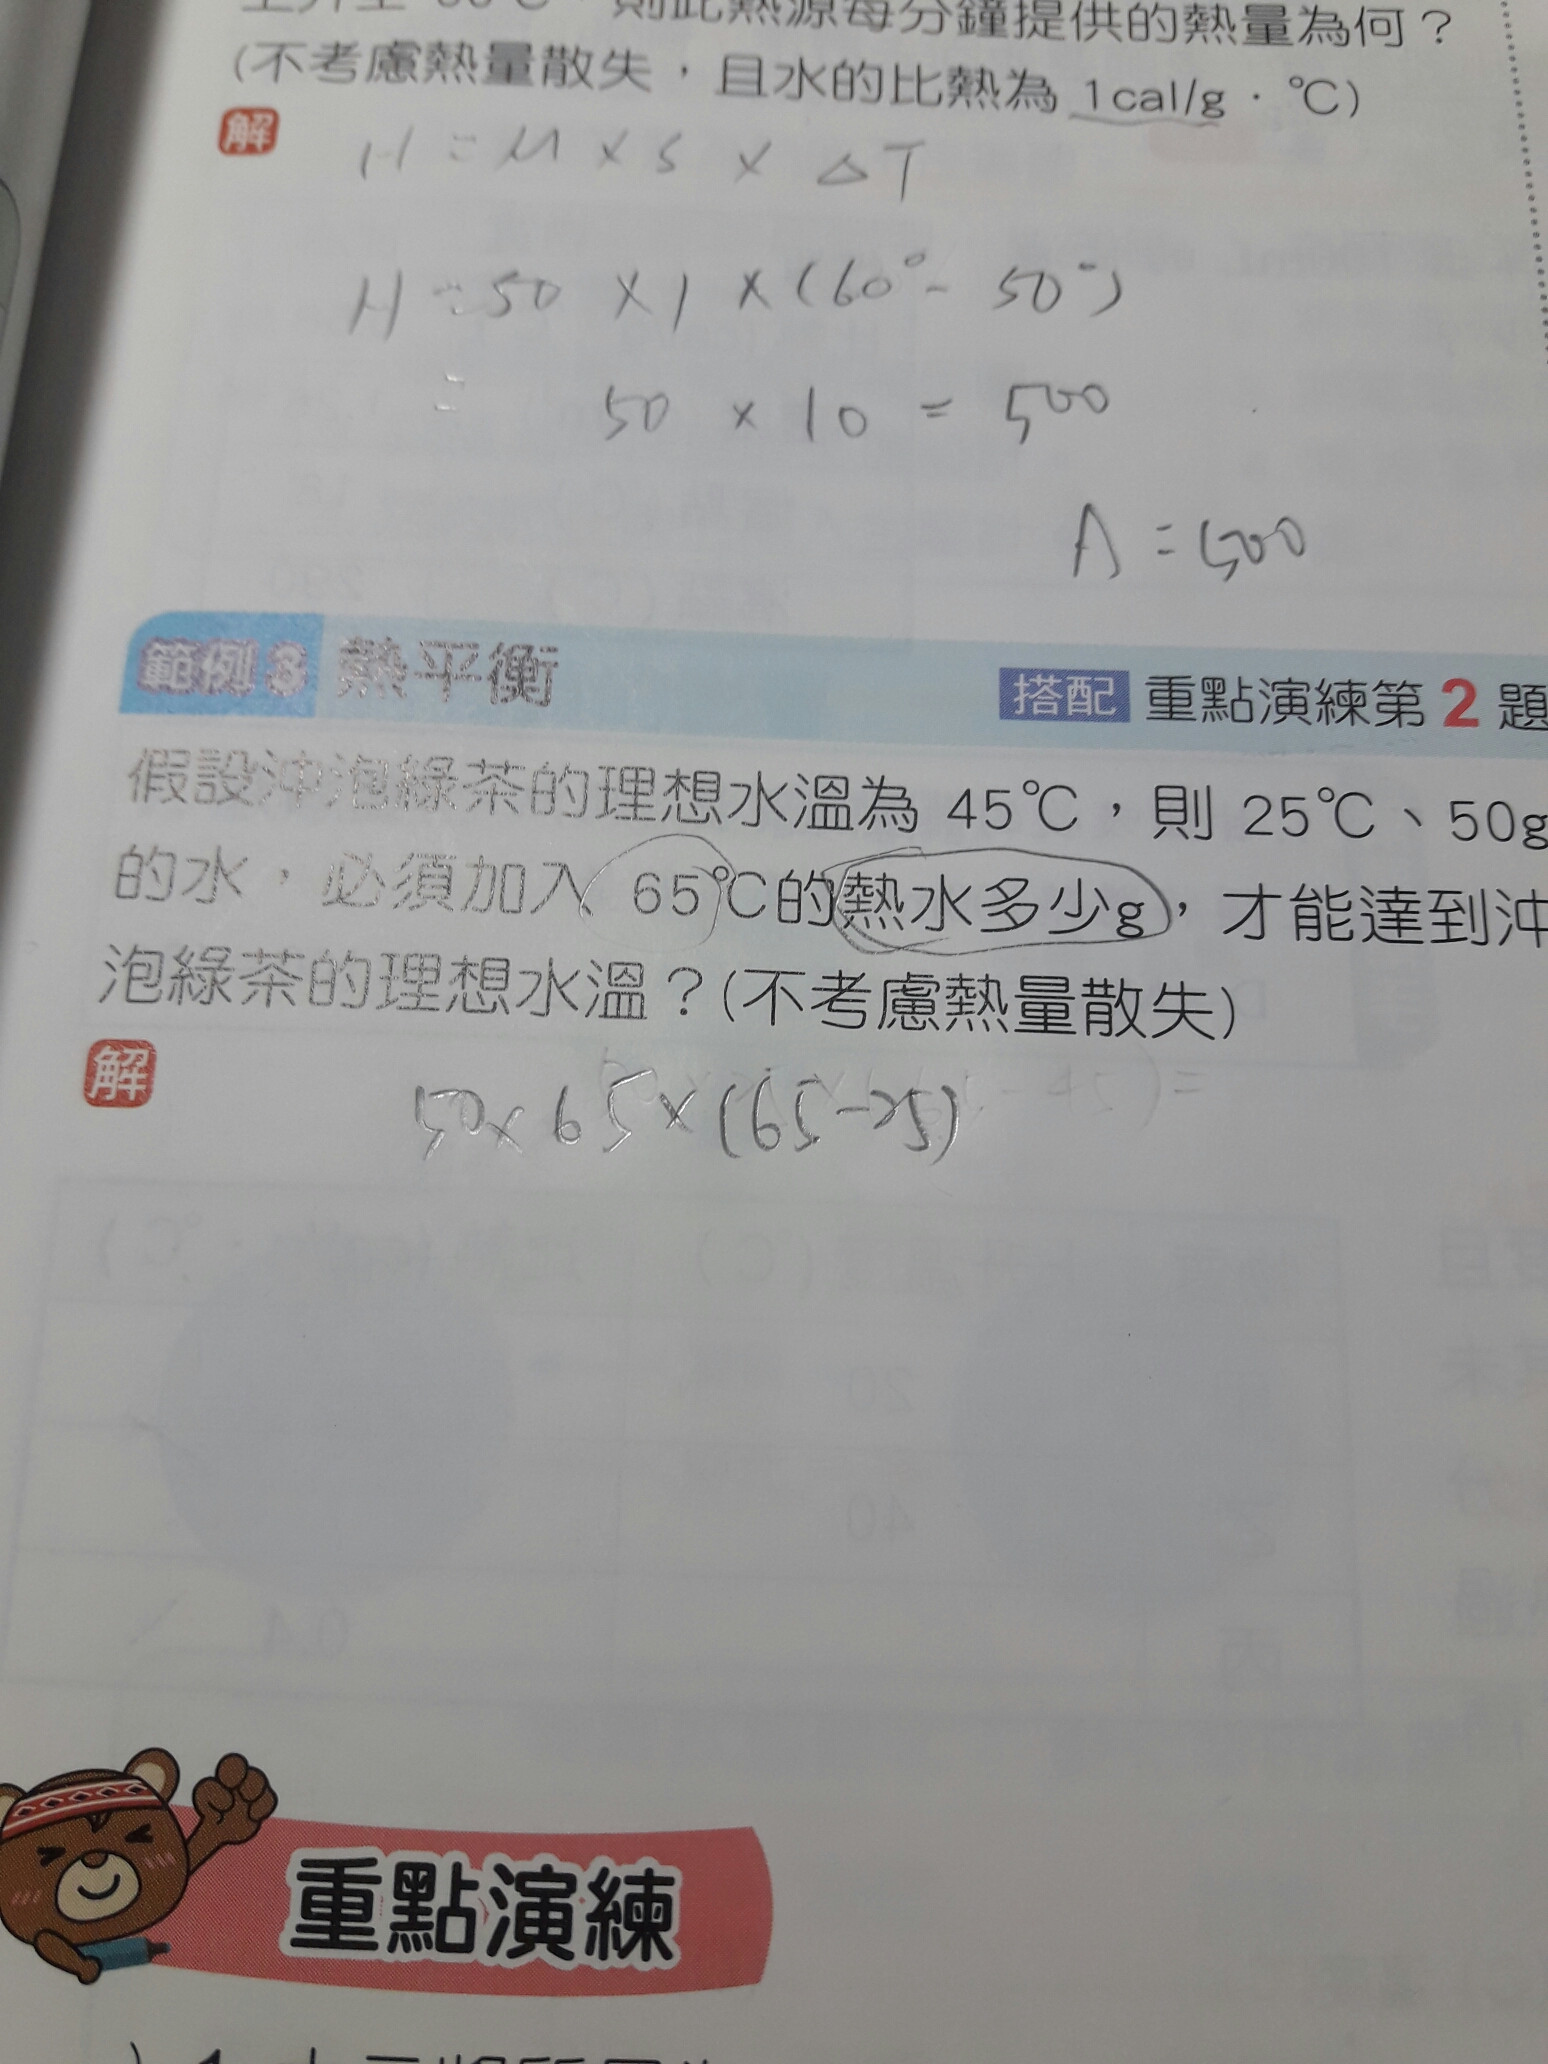 則此熱源每分鐘提供的熱量為何？
(不考慮熱量散失，且水的比熱為 1cal/g．℃)
解
H = M × S × △T
H = 50 × 1 × (60° - 50°)
= 50 × 10 = 500
A = 500
範例3 熱平衡 搭配 重點演練第 2 題
假設沖泡綠茶的理想水溫為 45℃，則 25℃、50g
的水，必須加入 65℃的熱水多少g，才能達到沖
泡綠茶的理想水溫？(不考慮熱量散失)
解
50 × 65 × (65-25)
重點演練